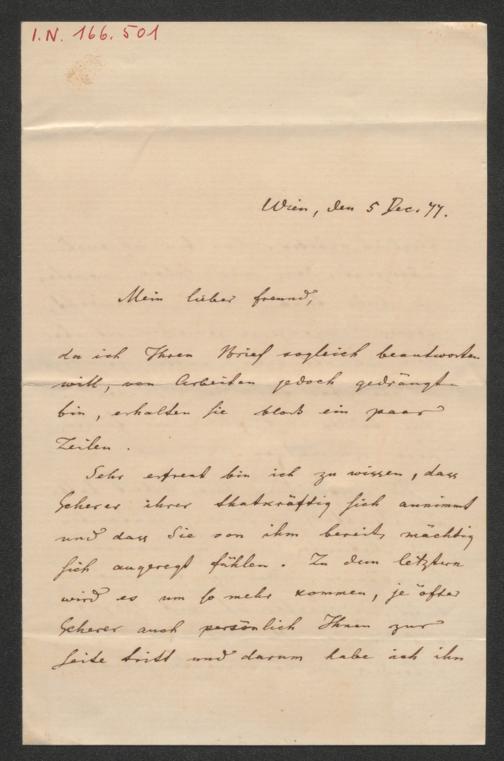 I.N. 166.501
Wien, den 5 Dec. 77.
Mein lieber Freund,
da ich Ihren Brief sogleich beantworten
will, von Arbeiten jedoch gedrängt
bin, erhalten Sie bloß ein paar
Zeilen.
Sehr erfreut bin ich zu wissen, dass
Scherer ihrer thatkräftig sich annimmt
und dass Sie von ihm bereits mächtig
sich angeregt fühlen. Zu dem letztern
wird es um so mehr kommen, je öfter
Scherer auch persönlich Ihnen zur
Seite tritt und darum habe ich ihn